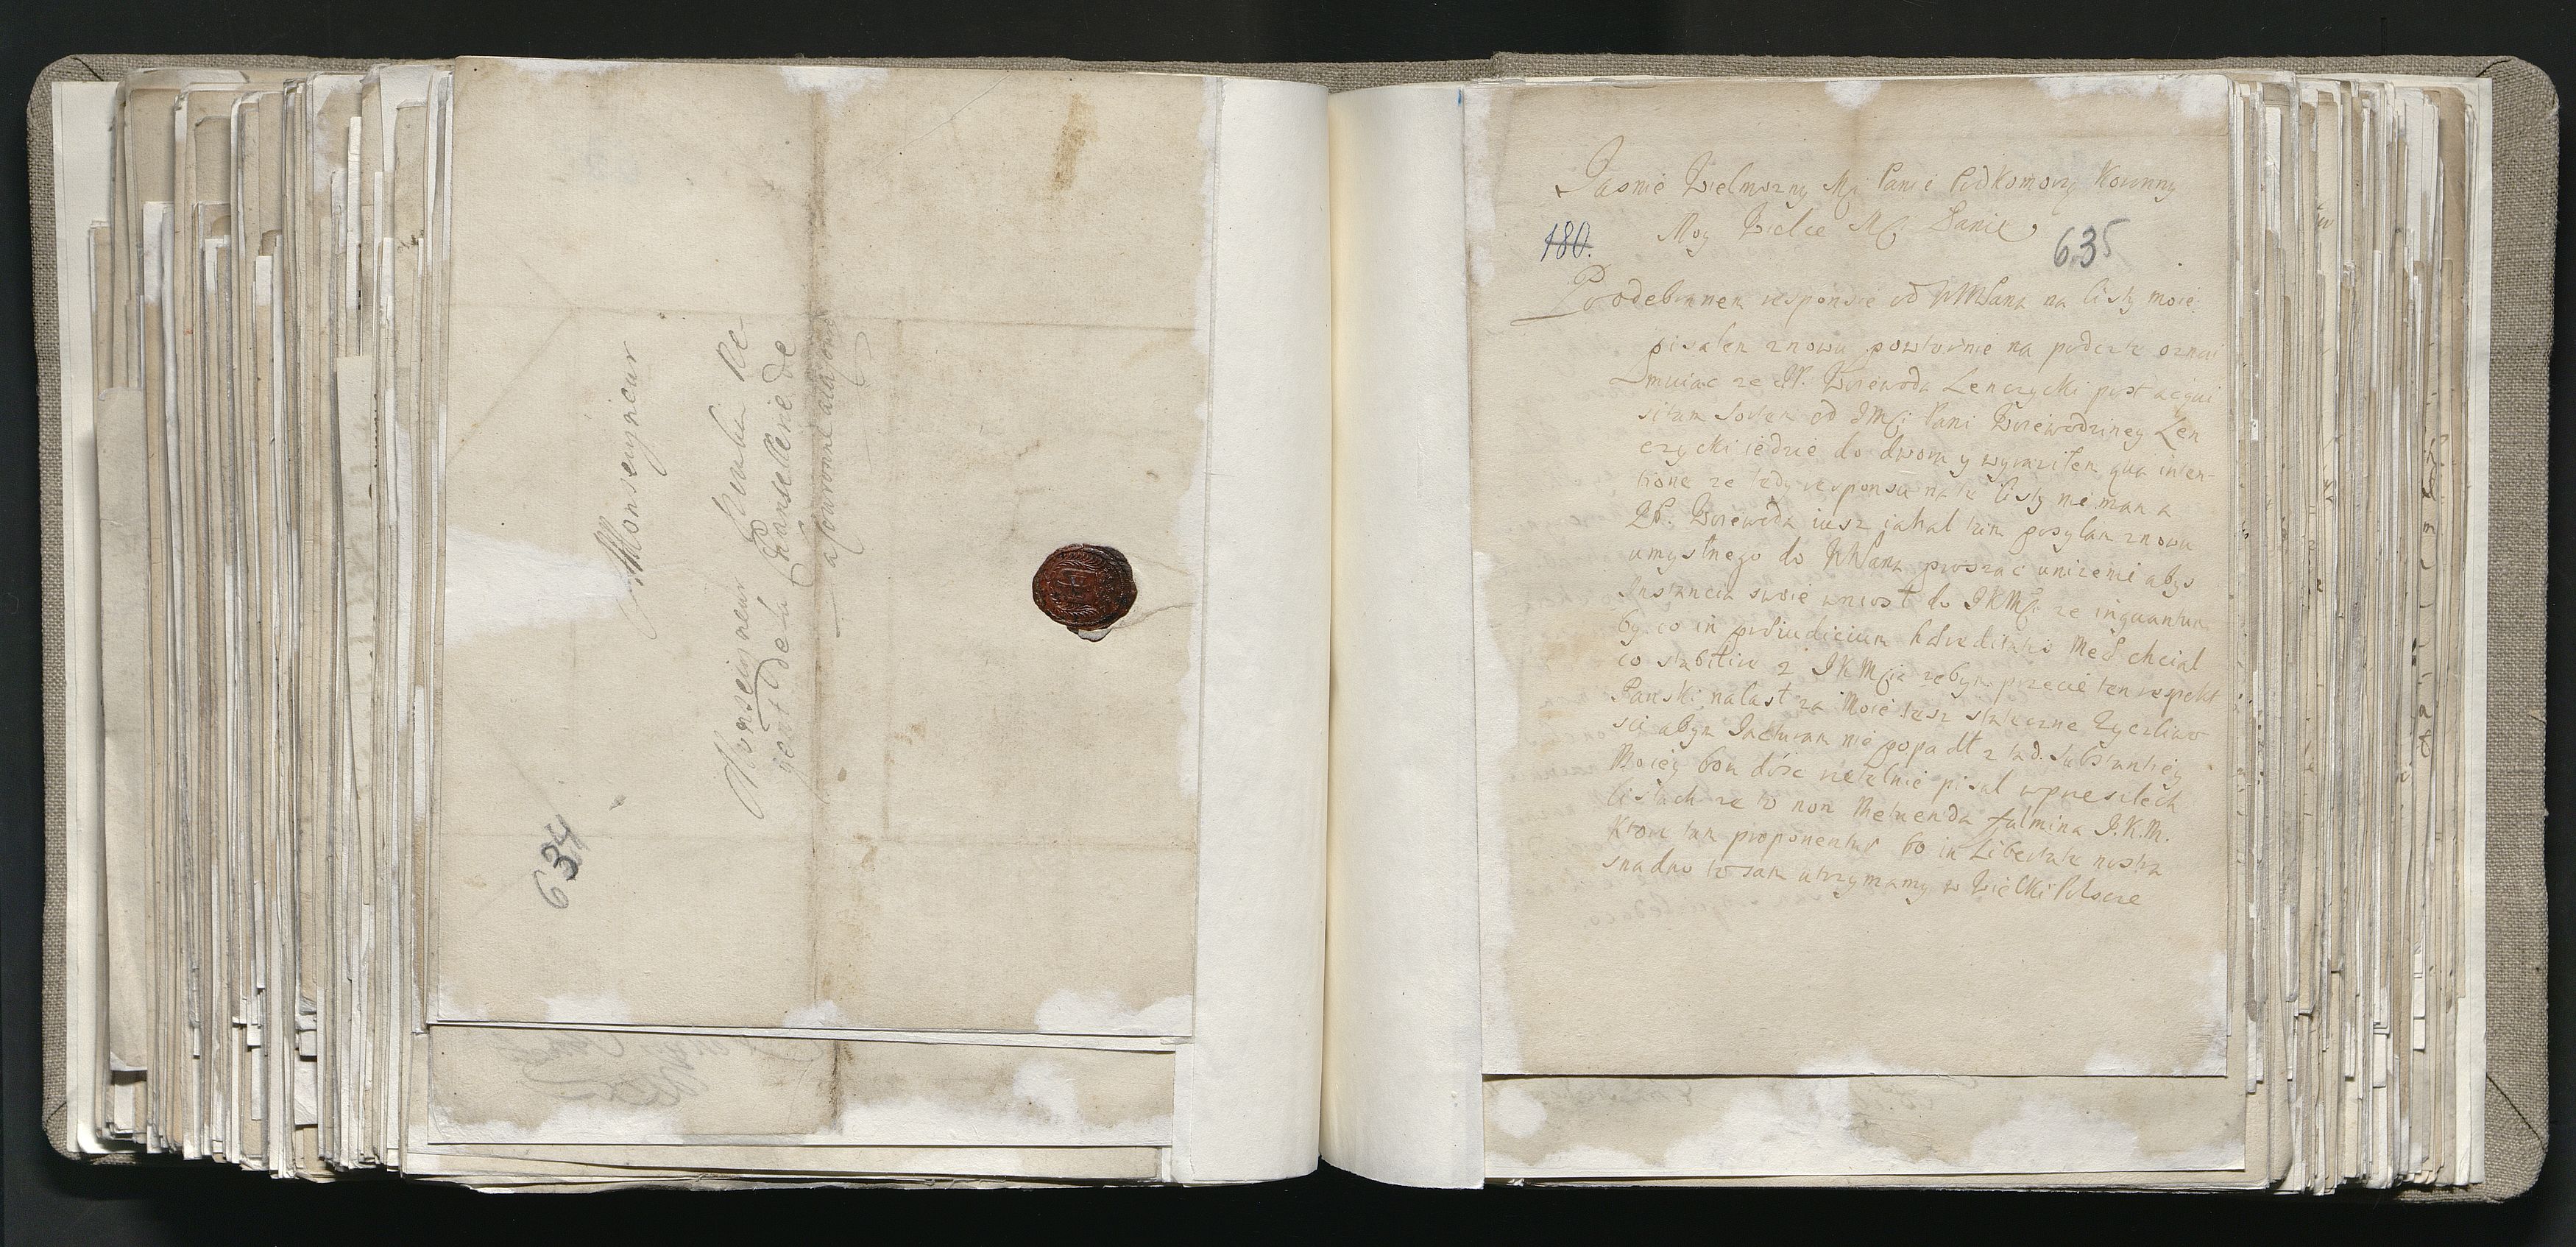 Monseigneur
Monseigneur
gent de la Chansellerie de
a la
634
Jasnie Wielmozny Mci Panie Podkomorzy Koronny
180. Moy Wielce Mci Panie 635
Po odebranem responsie od WMPana na listy moie
pisalem znowu powtornie na poczte oznai
muiac ze JP. Woiewoda Lenczycki post acqui
situm od JMci Pani Woiewodziney Len
czycki iedzie do dworu y wyrazilem qua inten-
tione ze tedy responsu na te listy nie mam a
JP. Woiewoda iusz iahal tam posylam znowu
umyslnego do WMPana proszac unizenie abys
Instancia swoie wniost do JKMci ze inquantum
by co in praeiudicium haereditatis Meae chcial
co stabilire z JKMcia zebym przecie ten respekt
Panski nalast za Moie tesz stateczne Zyczliwo
sci abym Jacturam nie popadl z tad. Substantiey
Moiey bom dosc rzetelnie pisal w przeszlech
listach ze to non Metuenda fulmina J.K.M.
Ktore tam proponentur bo in Libertate nostra
snadno to sam utrzymamy w Wielki Polscze